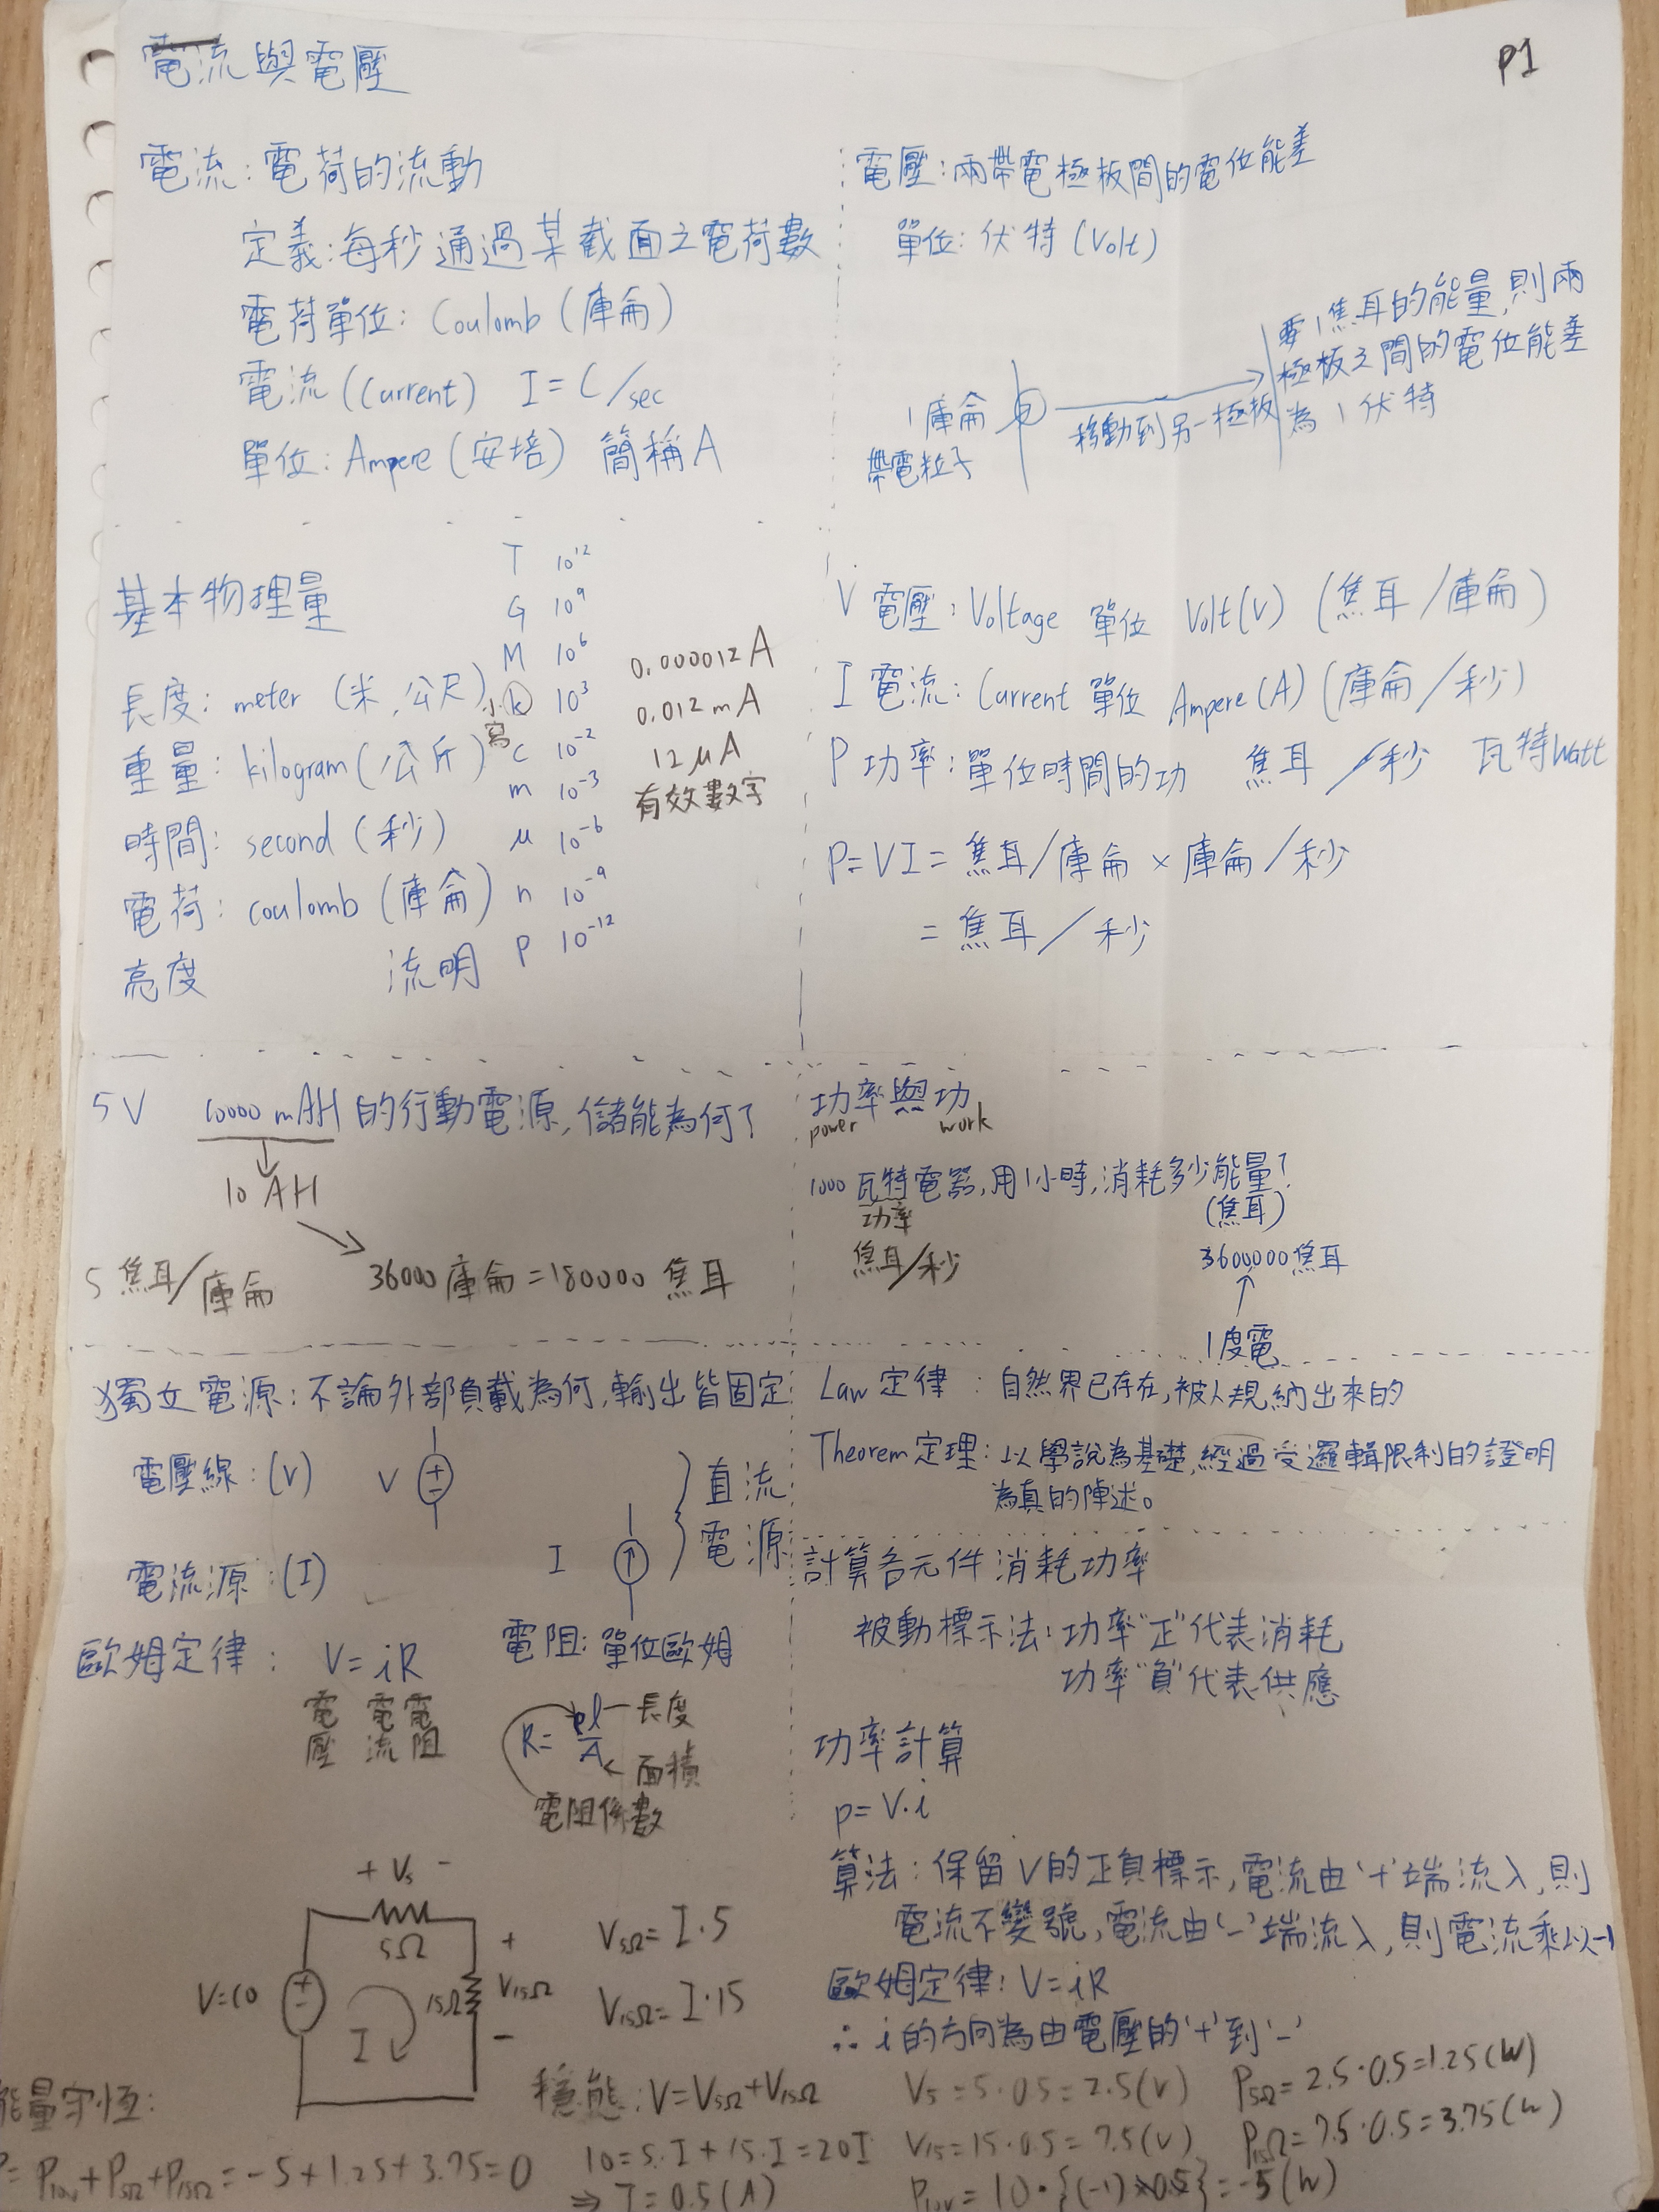 P1
電流與電壓
電流：電荷的流動
定義：每秒通過某截面之電荷數
電荷單位：Coulomb（庫侖）
電流（Current） I = C/sec
單位：Ampere（安培） 簡稱A
電壓：兩帶電極板間的電位能差
單位：伏特（Volt）
1庫侖
帶電粒子
移動到另一極板
要1焦耳的能量，則兩
極板之間的電位能差
為1伏特
基本物理量
長度：meter（米，公尺）
重量：kilogram（公斤）
時間：second（秒）
電荷：coulomb（庫侖）
亮度 流明
T 10¹²
G 10⁹
M 10⁶
小寫 k 10³
c 10⁻²
m 10⁻³
μ 10⁻⁶
n 10⁻⁹
p 10⁻¹²
0.000012A
0.012mA
12μA
有效數字
V 電壓：Voltage 單位 Volt(V)（焦耳/庫侖）
I 電流：Current 單位 Ampere(A)（庫侖/秒）
P 功率：單位時間的功 焦耳/秒 瓦特Watt
P=VI=焦耳/庫侖×庫侖/秒
=焦耳/秒
5V 10000mAH的行動電源，儲能為何？
10AH
5焦耳/庫侖 36000庫侖=180000焦耳
功率與功
power work
1000瓦特電器，用1小時，消耗多少能量？
功率 （焦耳）
焦耳/秒 3600000焦耳
1度電
獨立電源：不論外部負載為何，輸出皆固定
電壓線：(V) V + -
電流源：(I) I
直流
電源
Law 定律：自然界已存在，被人規納出來的
Theorem定理：以學說為基礎，經過受邏輯限制的證明
為真的陣述。
歐姆定律：V=iR
電壓 電流 電阻
電阻：單位歐姆
R=ρl/A
長度
面積
電阻係數
計算各元件消耗功率
被動標示法：功率"正"代表消耗
功率"負"代表供應
功率計算
p=V·i
算法：保留V的正負標示，電流由'+'端流入，則
電流不變號，電流由'-'端流入，則電流乘以-1
歐姆定律：V=iR
∴ i的方向為由電壓的'+'到'-'
+ V₅ -
5Ω
V=10
+ -
I
15Ω
+ V₁₅Ω -
V₅Ω=I·5
V₁₅Ω=I·15
穩態：V=V₅Ω+V₁₅Ω
10=5·I+15·I=20I
⇒ I=0.5(A)
V₅=5·0.5=2.5(V)
V₁₅=15·0.5=7.5(V)
P₅Ω=2.5·0.5=1.25(W)
P₁₅Ω=7.5·0.5=3.75(W)
P₁₀ᵥ=10·{(-1)×0.5}=-5(W)
能量守恆：
P=P₁₀ᵥ+P₅Ω+P₁₅Ω=-5+1.25+3.75=0